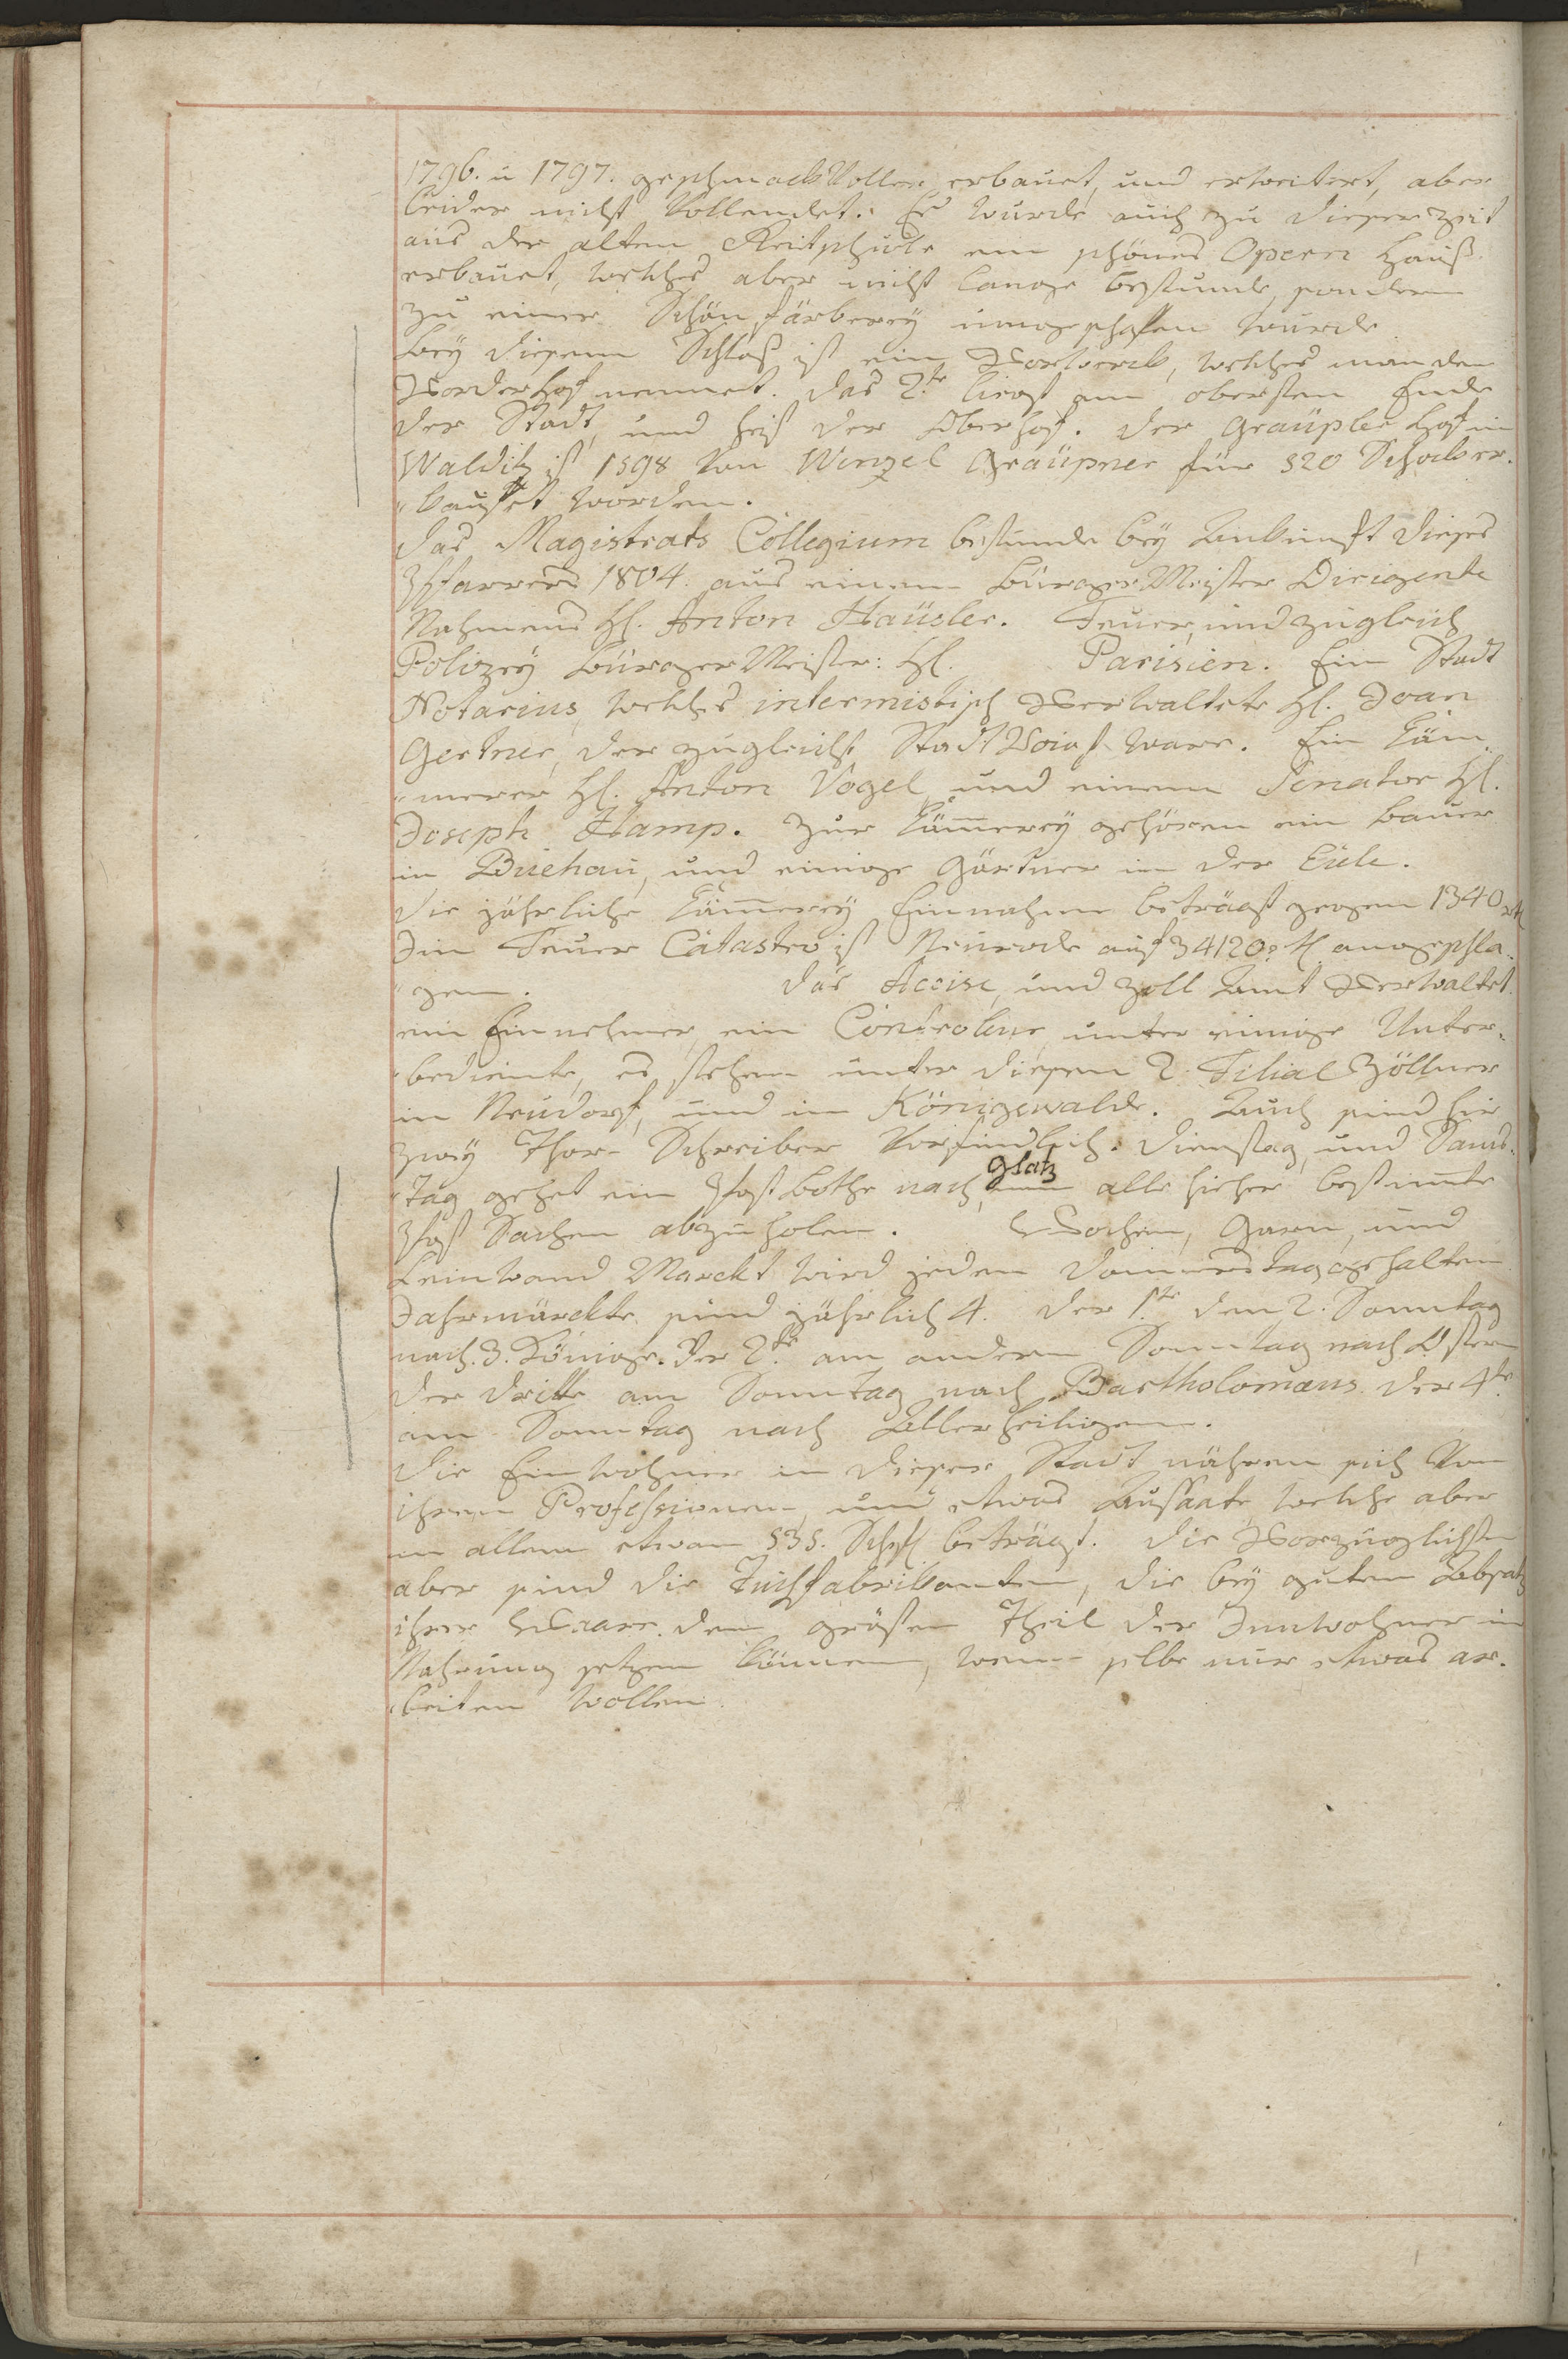 1796. ŭ 1797. geschmackVoller erbauet, und erweitert, aber
leider nicht Vollendet. Es wurde auch zu dieser Zeit
aus der alten Reitschule ein schönes Opern Hauß
erbauet, welches aber nicht lange bestunde, sondern
zu einer Schön färberey umgeschafen wurde
Bey diesem Schloß ist ein Vorwerck, welches man den
Vorderhof nennet. Das 2te liegt am obersten Ende
der Stadt, und heist der Oberhof. Der Graupler Hof in
Walditz ist 1598 Von Wenzel Graupner für 520 Schock er-
-kauffet worden.
Das Magistrats Collegium bestunde bey Ankunft dieses
Pfarrers 1804. aus einem BürgerMeister Dirigente
Nahmens H. Anton Haüsler. Feuer, und zugleich
Polizey BürgerMeister: H. Parisien. Ein Stadt
Notarius, welches intermistisch Verwaltete H. Joan
Gertner, der zugleicht Stadt Voigt ware. Ein Käm-
-merer H. Anton Vogel, und einem Senator H.
Joseph Hamp. Zur Kämmerey gehören ein Bauer
in Buchau, und einige Gärtner in der Eule.
Die jährliche Kämmerey Einnahme beträgt gegen 1340 rtl
Im Feuer Catastro ist Neurode auf 34120 rtl. angeschla-
-gen. Das Accise, und Zoll Amt Verwaltet
ein Einnehmer, ein Controleur unter einige Unter-
-bediente, es stehen unter diesen 2. Filial Zöllner
in Neudorf, und in Königswalde. Auch sind hie
zwey Thor-Schreiber Vorfindlich. Dienstag, und Sams-
-tag gehet ein Postbothe nach Glatz alle hieher bestimmte
Post Sachen abzuholen. Wochen, Garn, und
Leinwand Marckt wird jeden Donnerstag gehalten
Jahrmärckte sind jährlich 4. Der 1te den 2. Sonntag
nach 3. Könige. Der 2te am andern Sonntag nach Ostern
der dritte am Sonntag nach Bartholomaus. der 4te
am Sonntag nach Allerheiligen.
Die Einwohner in dieser Stadt nähren sich Von
ihren Professionen, und etwas Aussaate, welche aber
in allem etwan 535. Schfl beträgt. Die Vorzüglichsten
aber sind die Tuchfabrikanten, die bey gutem Absatz
ihrer Waare den grösten Theil der Innwohner in
Nahrung setzen können, wenn selbe nur etwas ar-
-beiten wollen.